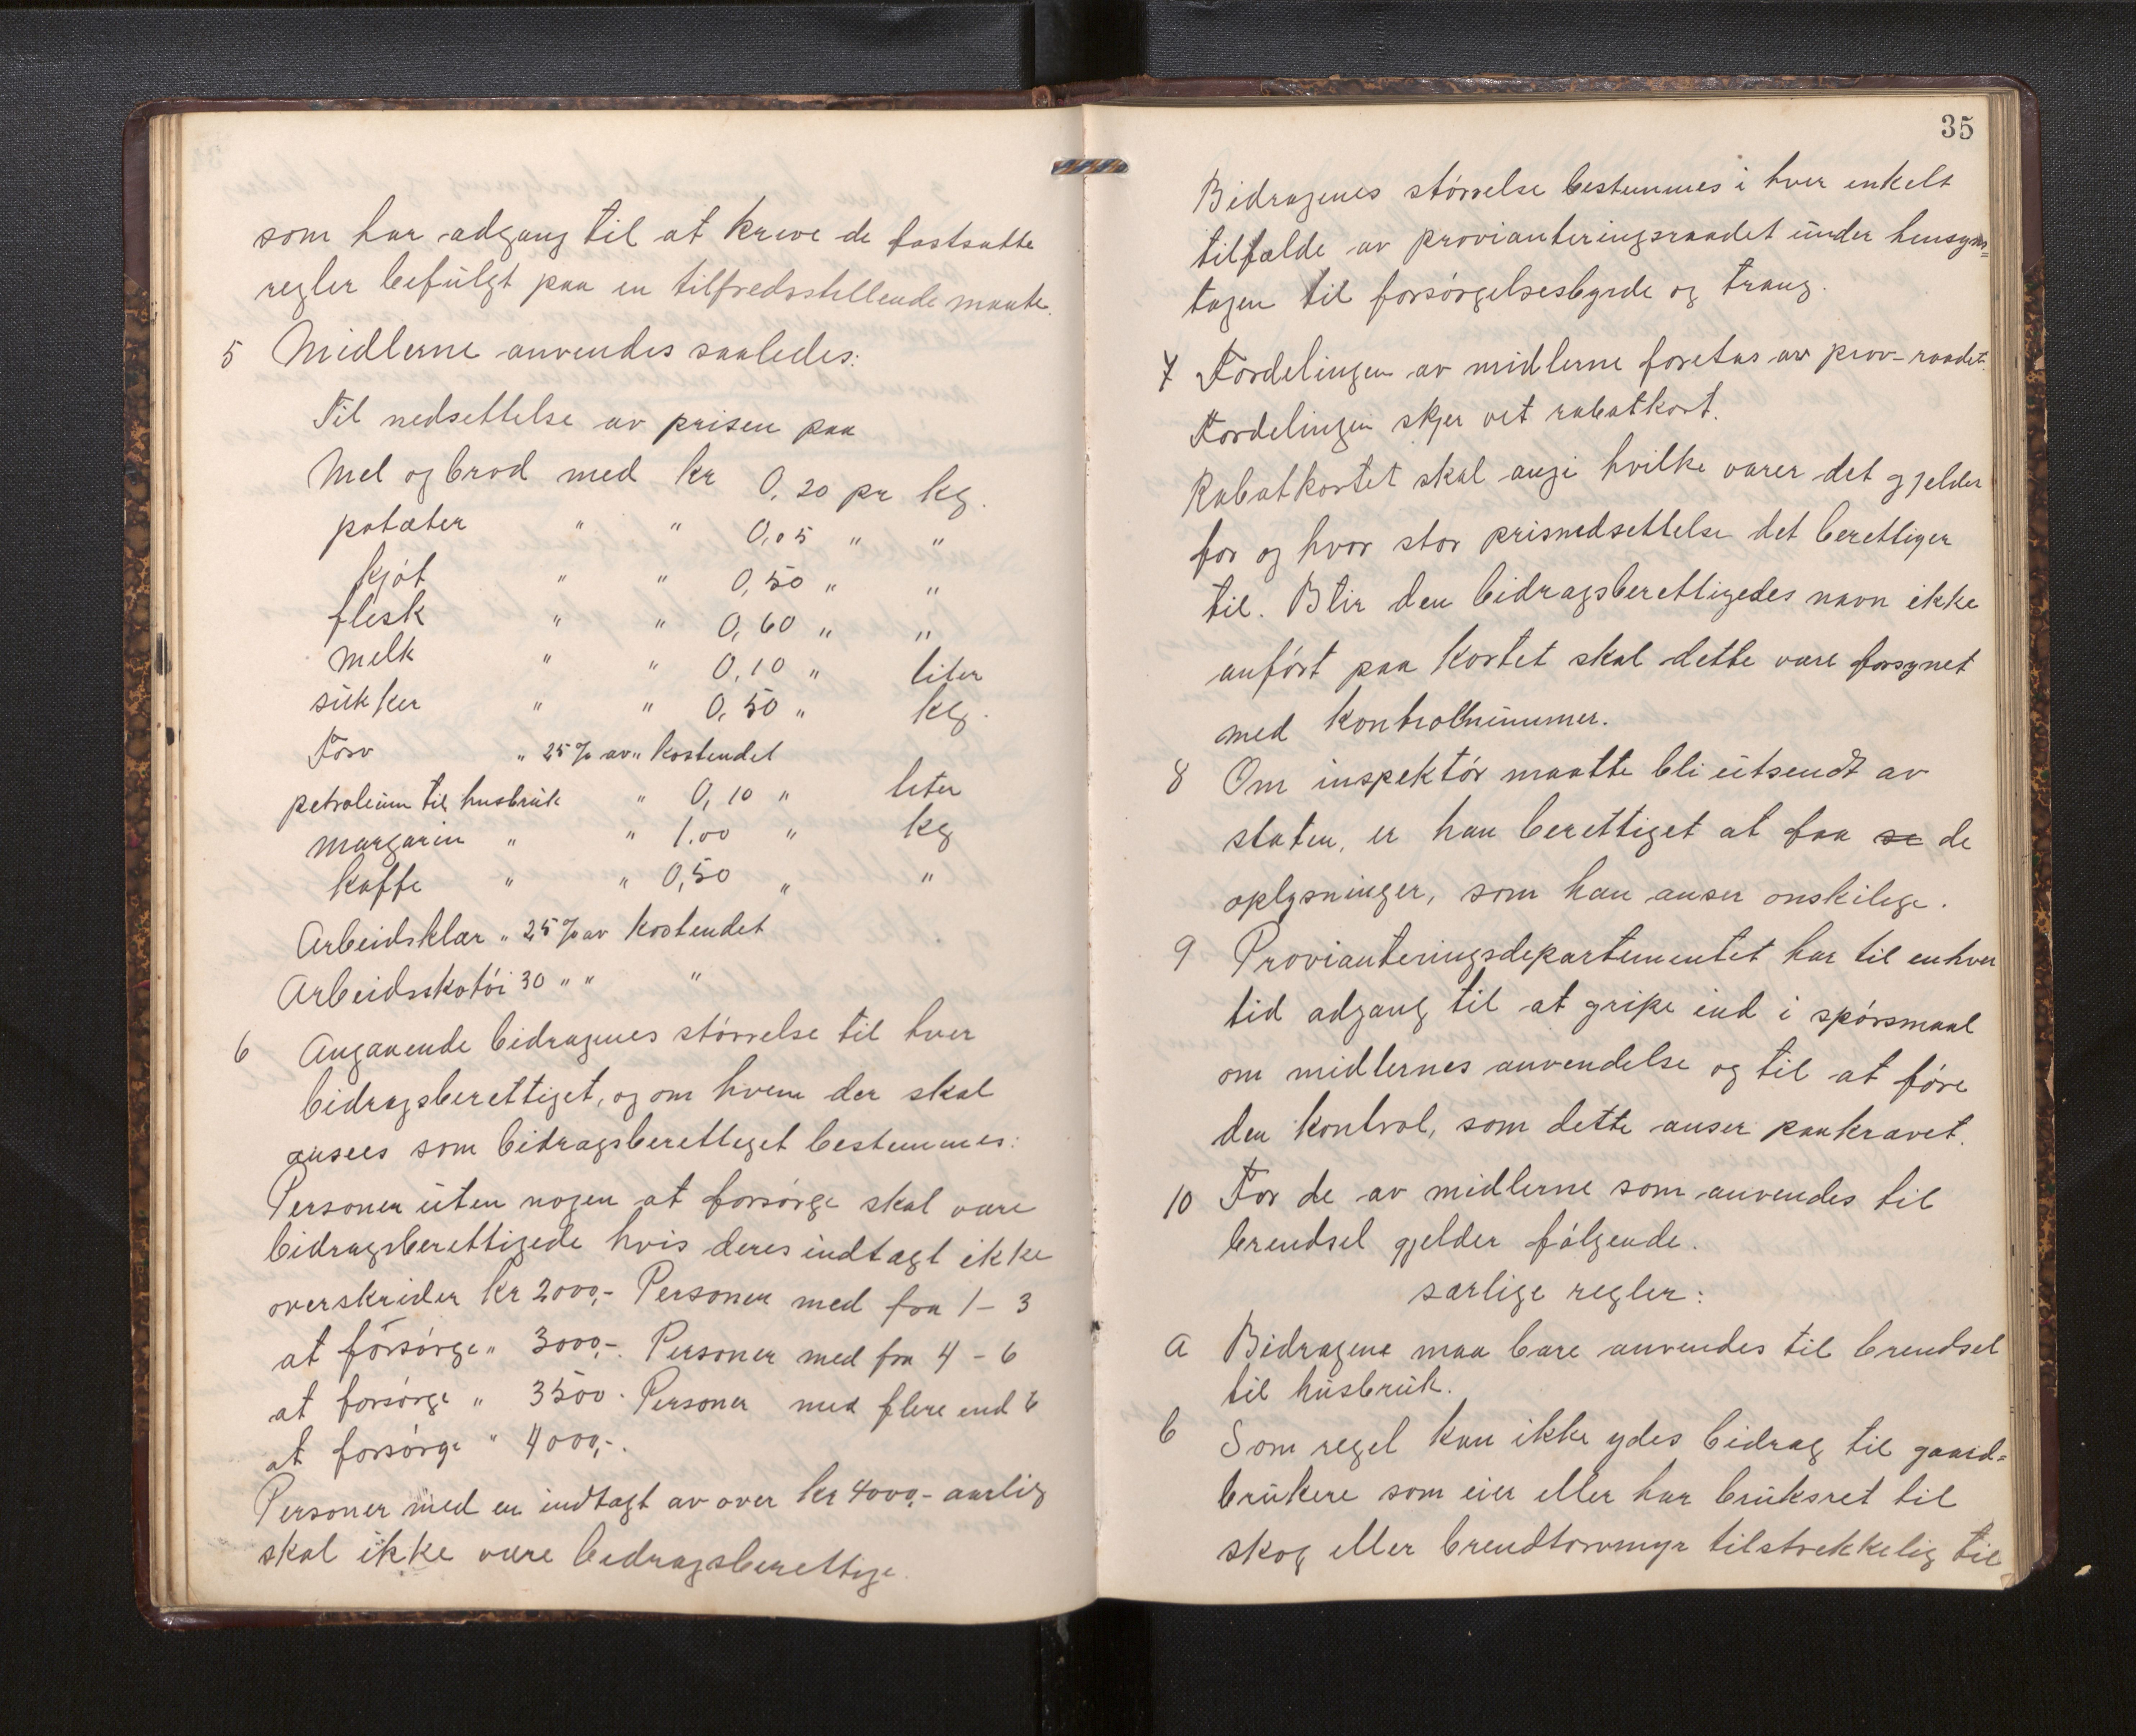 som har adgang til at kreve de fastsatte
regler befulgt paa en tilfredsstillende maate.
5 Midlerne anvendes saaledes:
Til nedsettelse av prisen paa
Mel og brød med kr 0,20 pr kg.
potæter " " 0,05 " "
kjøt " " 0,50 " "
flesk " " 0,60 " "
melk " " 0,10 " liter
sukker " " 0,50 " kg.
Törv " 25 % av " kostendet
petroleum til husbruk " 0,10 " liter
margarin " " 1.00 " kg
kaffe " " 0,50 " "
Arbeidsklær " 25 % av kostendet
Arbeidsskotöi 30 " " "
6 Angaaende bidragenes större­lse til hver
bidragsberettiget, og om hvem der skal
ansees som bidragsberettiget bestemmes:
Personer uten nogen at forsörge skal være
bidragsberettigede hvis deres indtægt ikke
overskrider kr 2000,- Personer med fra 1 - 3
at försörge " 3000,-. Personer med fra 4 - 6
at forsörge " 3500. Personer med flere end 6
at forsörge " 4000,-.
Personer med en indtægt av over kr 4000,- aarlig
skal ikke være bidragsberettige.
35
Bidragenes större­lse bestemmes i hver enkelt
tilfælde av provianteringsraadet under hensyns=
tagen til forsörgelsesbyrde og trang.
7 Fordelingen av midlerne foretas av prov-raadet.
Fordelingen skjer vet rabatkort.
Rabatkortet skal angi hvilke varer det gjelder
for og hvor stor prisnedsettelse det berettiger
til. Blir den bidragsberettigedes navn ikke
anfört paa kortet skal dette være forsynet
med kontrollnummer.
8 Om inspektör maatte bli utsendt av
staten, er han berettiget at faa se de
oplysninger, som han anser ønskilige.
9 Provianteringsdepartementet har til enhver
tid adgang til at gripe ind i spörsmaal
om midlernes anvendelse og til at före
den kontrol, som dette anser paakrævet.
10 For de av midlerne som anvendes til
brendsel gjelder fölgende.
særlige regler:
a Bidragene maa bare anvendes til brendsel
til husbruk.
b Som regel kan ikke ydes bidrag til gaard=
brukere som eier eller har bruksret til
skog eller brendtorvmyr tilstrekkelig til